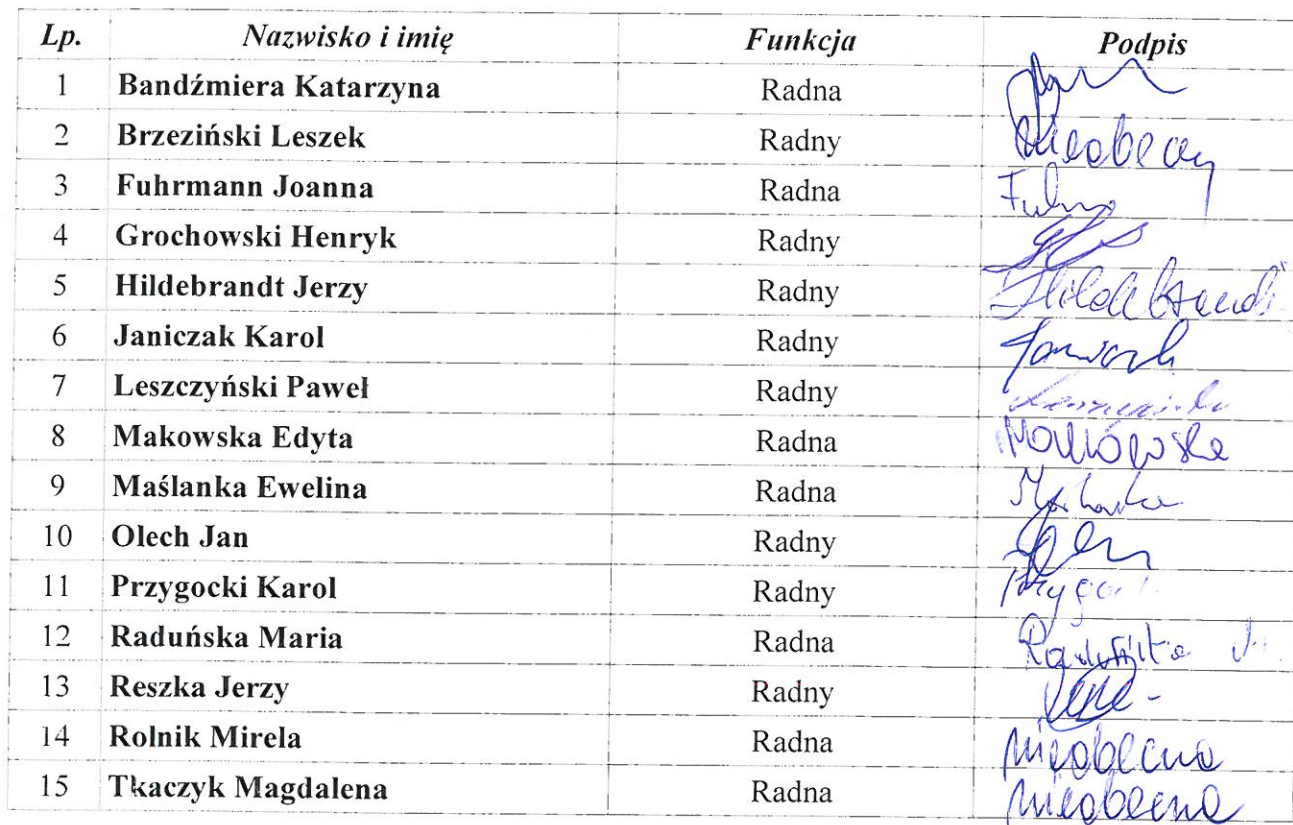 Lp. Nazwisko i imię Funkcja Podpis
1 Bandźmiera Katarzyna Radna
2 Brzeziński Leszek Radny nieobecny
3 Fuhrmann Joanna Radna
4 Grochowski Henryk Radny
5 Hildebrandt Jerzy Radny Hildebrandt
6 Janiczak Karol Radny
7 Leszczyński Paweł Radny
8 Makowska Edyta Radna Makowska
9 Maślanka Ewelina Radna
10 Olech Jan Radny
11 Przygocki Karol Radny
12 Raduńska Maria Radna Raduńska M.
13 Reszka Jerzy Radny
14 Rolnik Mirela Radna nieobecna
15 Tkaczyk Magdalena Radna nieobecna